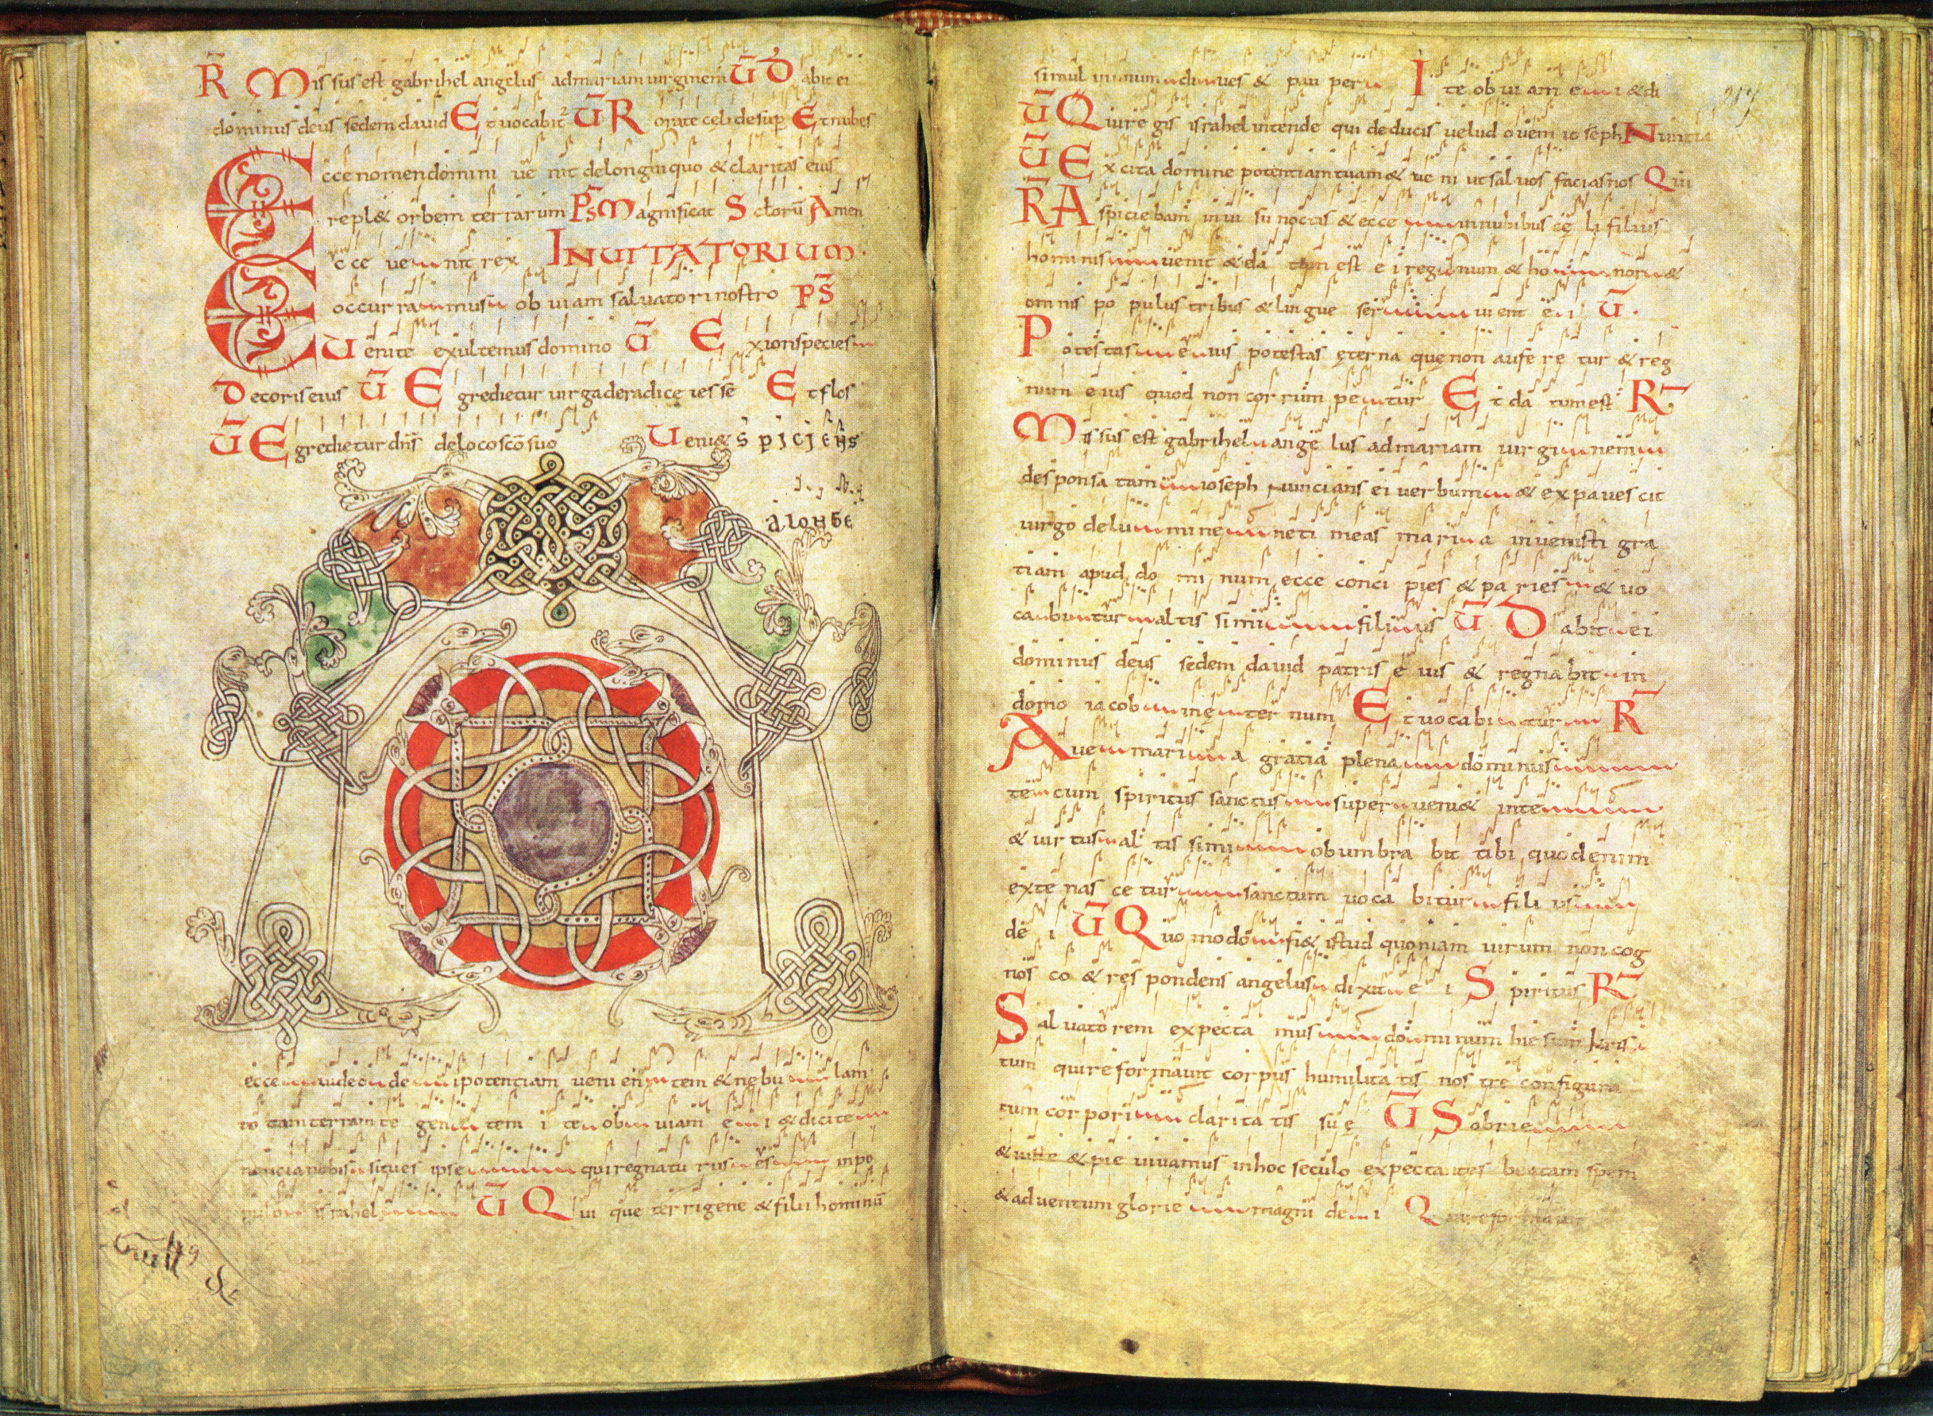 R Missus est gabrihel angelus admariam uirginem V Dabit ei
dominus deus sedem dauid Et uocabit V Rorate celi desup Et nubes
Ecce nomen domini ue nit delonginquo & claritas eius
repl& orbem terrarum Ps Magnificat S clorū Amen
Ecce ueniit rex INUITATORIUM
occurramus ob uiam saluatori nostro PS
Uenite exultemus domino V Exsion species
Decoris eius V Egredietur uirga deradice iesse Et flos
V Egredietur dns deloco sco suo Ueni& spiciens
alonge
ecce uideo de i potentiam uenientem & nebu lam
to tam terram te gentem i te ob uiam e i & dicite
nuncia nobis situes ipse qui regnatu rus es inpo
pulo israhel V Qui que terrigene & filii hominū
simul inunum diues & pau per Ite ob ui am ei & di
V Qui regis israhel intende qui deducis uelud ouem ioseph Nuntia
V Excita domine potentiam tuam & ue ni ut saluos facias nos Qui
R Aspiciebam in ui su noctis & ecce innubibus cę li filius
hominis uenit & da tum est e i regnum & ho nor &
omnis po pulus tribus & lingue ser uient e i V
Potestas e ius potestas ęterna que non aufe re tur & reg
num eius quod non cor rum pe tur Et da tum est R
Missus est gabrihel ange lus admariam uir gi nem
desponsa tam ioseph nuncians ei uerbum & expauescit
uirgo delu mine ne ti meas mari a inuenisti gra
tiam apud do mi num ecce conci pies & pa ries & uo
cabi tur al tis simi fili us V Dabit ei
dominus deus sedem dauid patris e ius & regna bit in
domo iacob in ę ter num Et uocabi tur R
Aue mari a gratia plena dominus
te cum spiritus sanctus super ueni& inte
& uir tus al tis simi obumbra bit tibi quodenim
exte nas ce tur sanctum uoca bitur fili us
de i V Quo modo fi& istud quoniam uirum non cog
nos co & res pondens angelus dixit e i Spiritus R
Saluatorem expecta mus do mi num hiesum kris
tum qui reformauit corpus humilita tis nos tre configura
tum cor pori clarita tis su ę V Sobrie
& iuste & pie uiuamus inhoc seculo expectantes beatam spem
& aduentum glorie magni de i Qui reformauit